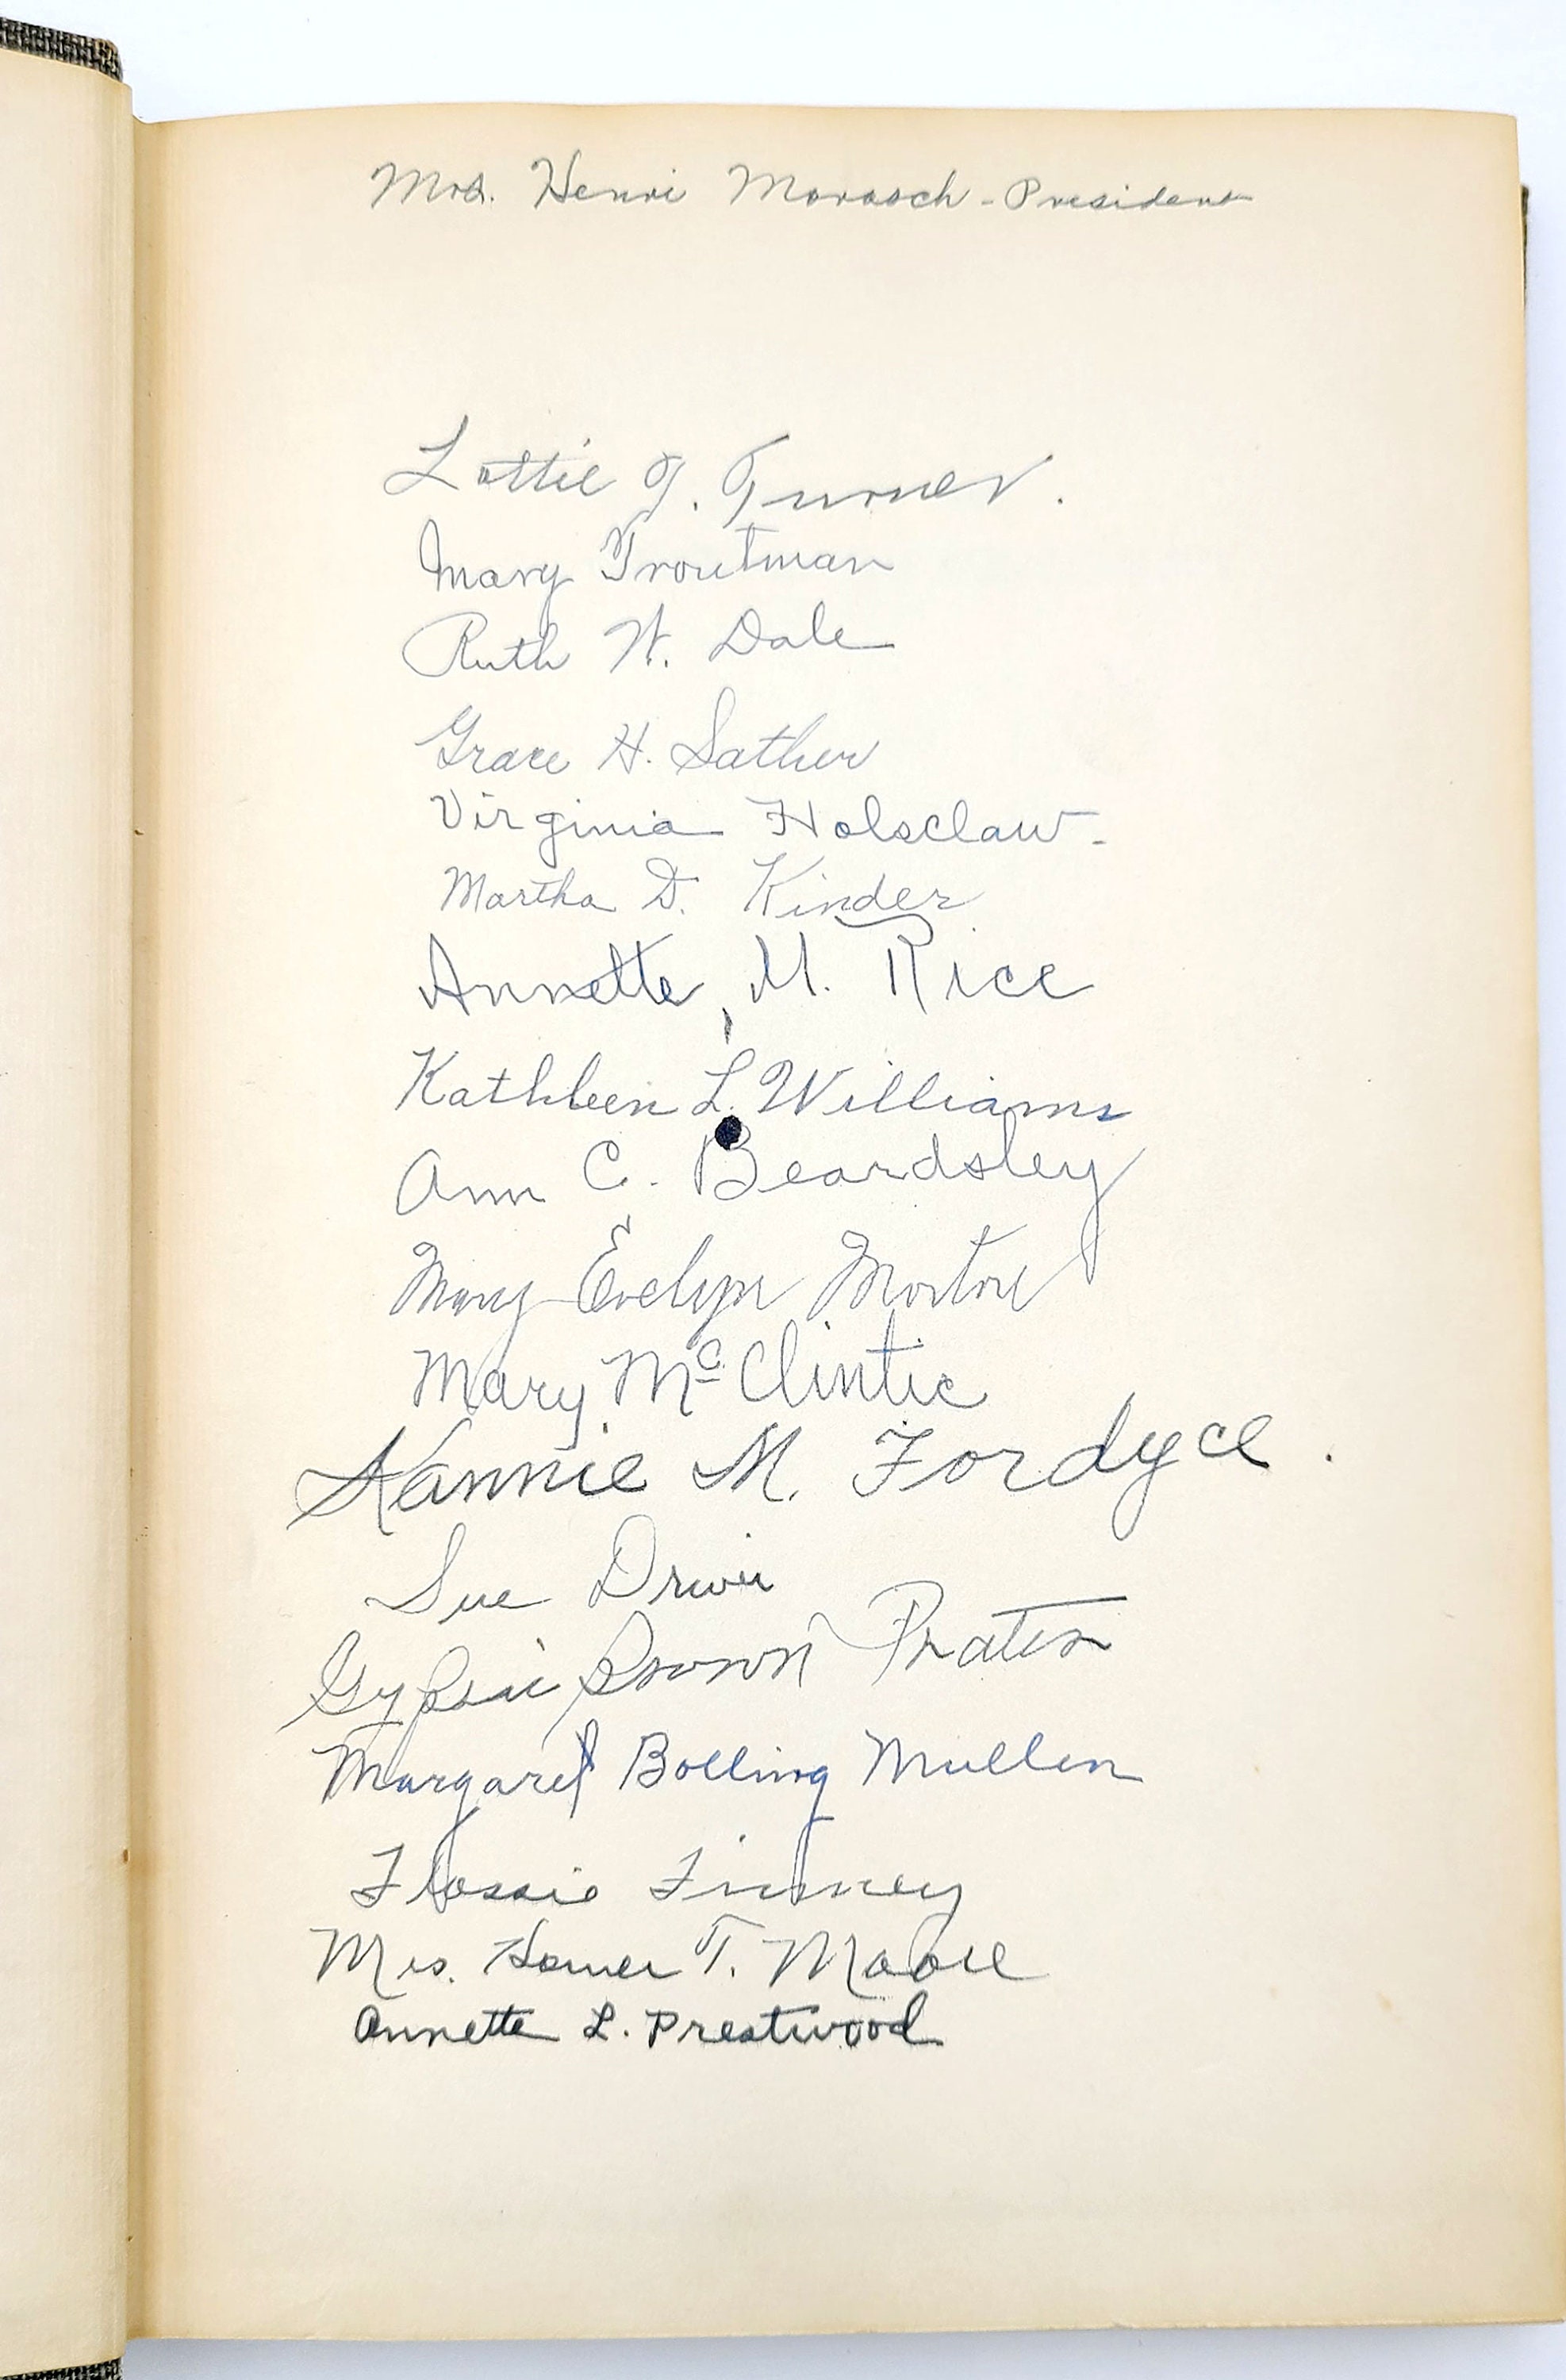 Mrs. Henri Morasch - President
Lottie T. Turner.
Mary Troutman
Ruth W. Dale
Grace H. Sather
Virginia Holsclaw -
Martha D. Kinder
Annette M. Rice
Kathleen L. Williams
Ann C. Beardsley
Mary Evelyn Morton
Mary McClintic
Nannie M. Fordyce .
Sue
Gypsie Brown Prater
Margaret Bolling Mullen
Flossie Finney
Mrs. Homer T. Moore
Annette L. Prestwood